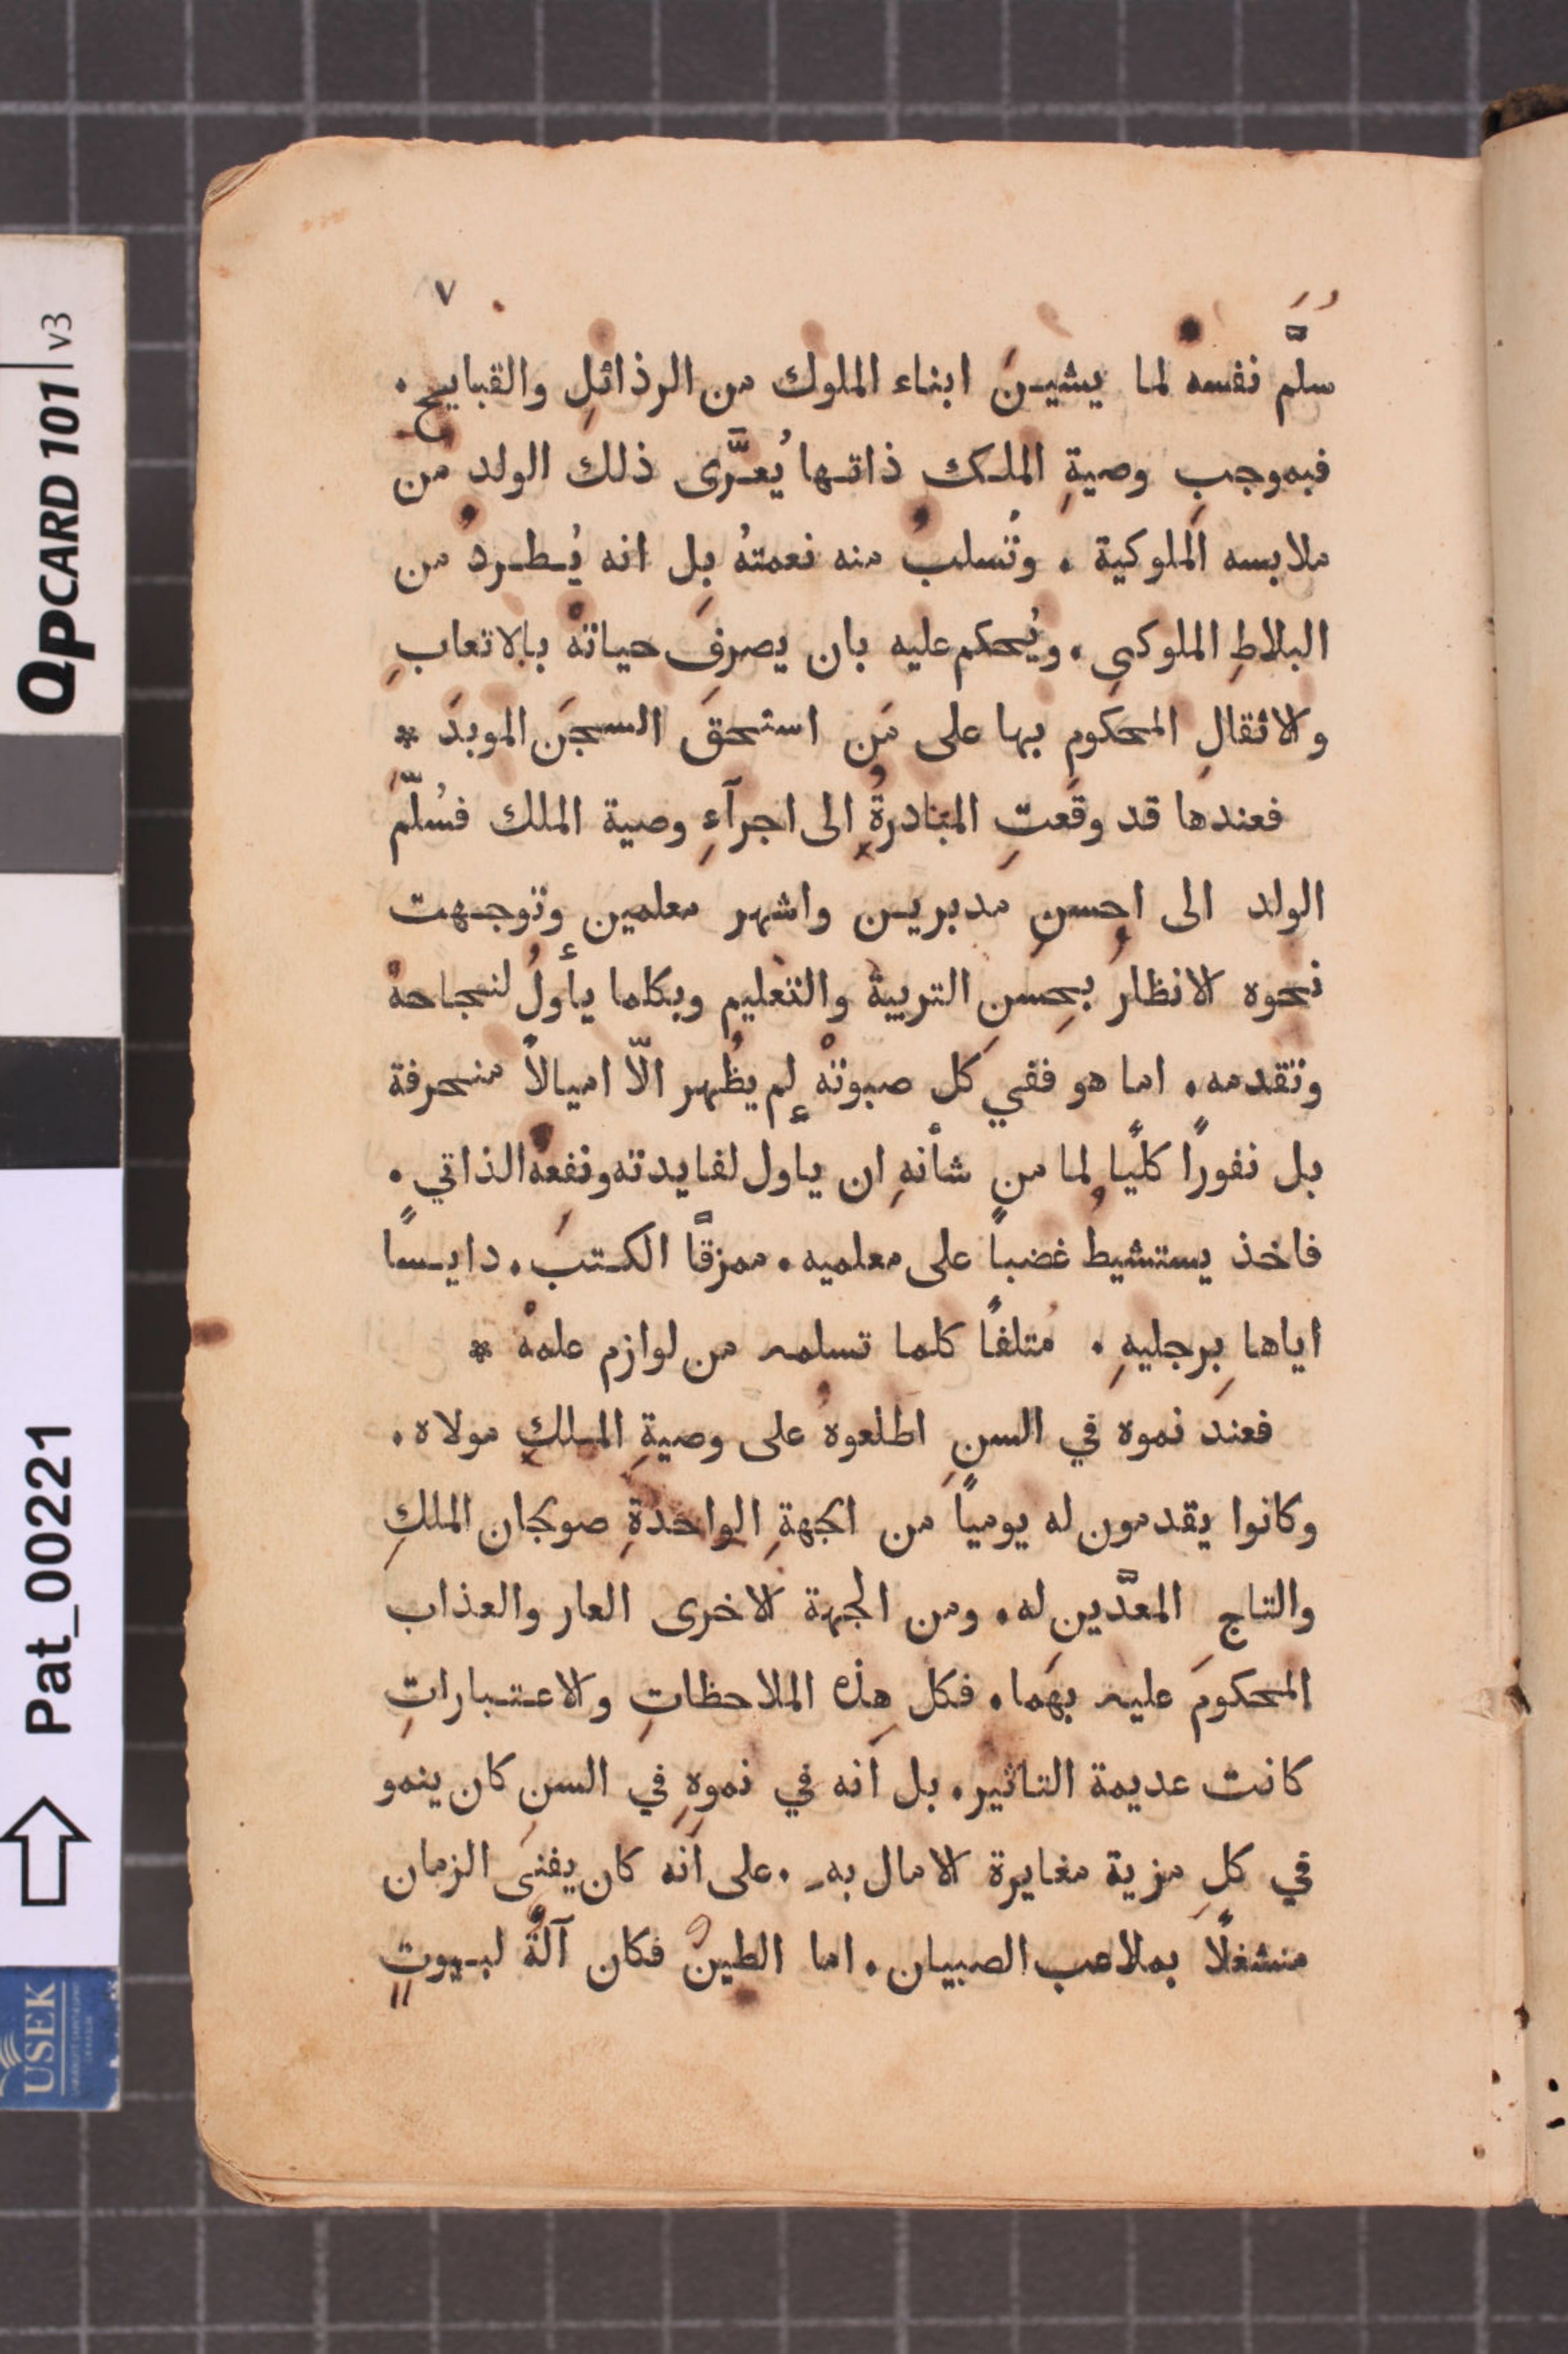 ٧
سلَّم نفسه لما يشيـنَ ابناء الملوك من الرذائلِ والقبايح.
فبموجبِ وصيةِ الملـك ذاتـها يُعـرَّى ذلك الولد من
ملابسه الملوكية . وتُسلبُ منه نعمتهُ بل انه يُـطـردُ من
البلاطِ الملوكي . ويُحكم عليه بان يصرفَ حياتهُ بالاتعابِ
والاثقالِ المحكومِ بها على مَن استحقَ السجنَ الموبدَ *
فعندها قد وقَعتِ المبادرةُ الى اجرآءِ وصية الملك فسُلّمَ
الولد الى احسنِ مدبريـن واشهر معلمين وتوجـهت
نحوه الانظارُ بحسنِ التربية والتعليم وبكلما يأولُ لنجاحهُ
وتقدمه . اما هو ففي كل صبوتهُ لم يظُهر الّا اميالاً منحرفة
بل نفورًا كليًا لما من شأنهِ ان ياول لفايدته ونفعهُ الذاتي .
فاخذ يستشيط غضباً على معلميه . ممزقًّا الكـتبَ . دايـسًا
اياها برجليهِ . مُتلفًا كلما تسلمه من لوازم علمهُ *
فعند نموه في السنِ اطلعوهُ على وصيةِ المـلكِ مولاه .
وكانوا يقدمون له يوميًا من الجهةِ الواحدةِ صولجان الملكِ
والتاجِ المعدَّين له . ومن الجهة الاخرى العار والعذاب
المحكومَ عليه بهما . فكل هذه الملاحظاتِ والاعـتـباراتِ
كانت عديمة التاثير . بل انه في نموهِ في السنِ كان ينمو
في كلِ مزية مغايرة الامال به . على انه كان يفنى الزمان
منشغلاً بملاعب الصبيان . اما الطينُ فكان آلةً لبـيوتٍ
QPCARD 101 v3
Pat_00221
USEK